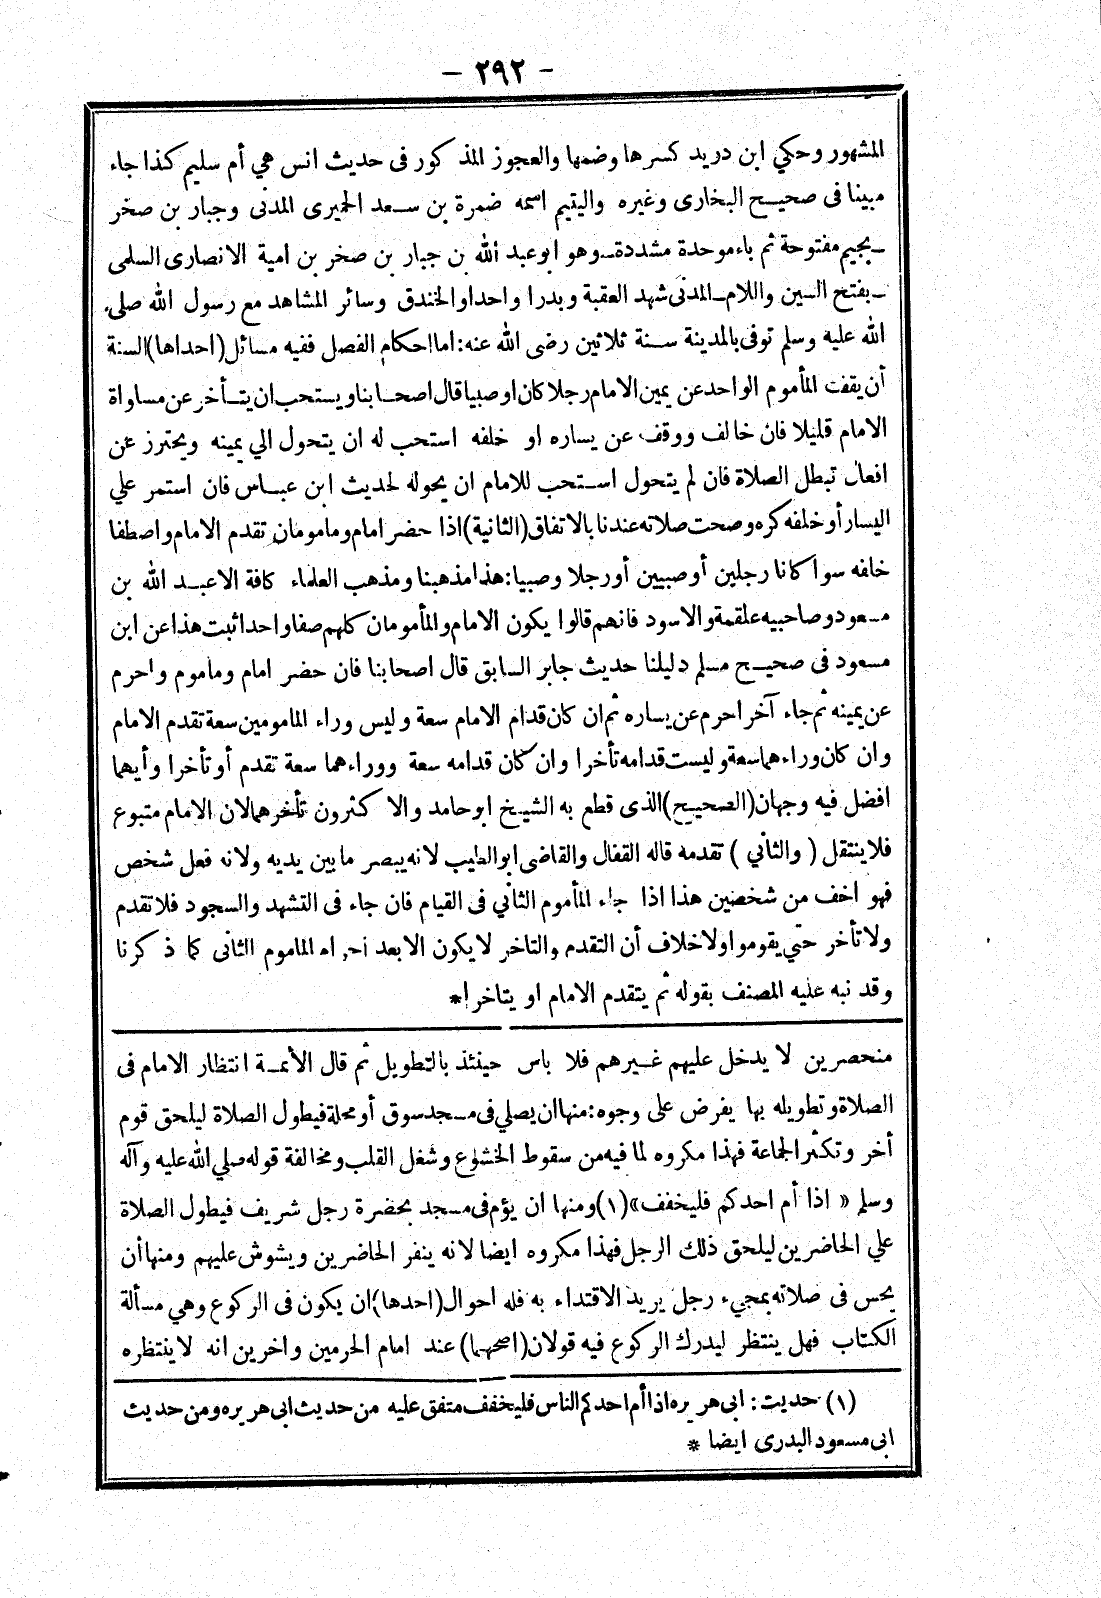 - ٢٩٢ -
المشهور وحكي ابن دريد كسرها وضمها والعجوز المذكور فى حديث انس هي أم سليم كذا جاء
مبينا فى صحيح البخارى وغيره واليتيم اسمه ضمرة بن سعد الحميرى المدنى وجبار بن صخر
ـ بجيم مفتوحة ثم باء موحدة مشددة ـ وهو ابو عبد الله بن جبار بن صخر بن امية الانصارى السلمى
ـ بفتح السين واللام ـ المدنى شهد العقبة وبدرا واحدا والخندق وسائر المشاهد مع رسول الله صلى
الله عليه وسلم توفى بالمدينة سنة ثلاثين رضى الله عنه: اما احكام الفصل ففيه مسائل (احداها) السنة
أن يقف المأموم الواحد عن يمين الامام رجلا كان او صبيا قال اصحابنا ويستحب ان يتأخر عن مساواة
الامام قليلا فان خالف ووقف عن يساره او خلفه استحب له ان يتحول الي يمينه ويحترز عن
افعال تبطل الصلاة فان لم يتحول استحب للامام ان يحوله لحديث ابن عباس فان استمر علي
اليسار أو خلفه كره وصحت صلاته عندنا بالاتفاق (الثانية) اذا حضر امام ومامومان تقدم الامام واصطفا
خلفه سوا كانا رجلين أو صبيين أو رجلا وصبيا: هذا مذهبنا ومذهب العلماء كافة الا عبد الله بن
مسعود وصاحبيه علقمة والاسود فانهم قالوا يكون الامام والمأمومان كلهم صفا واحدا ثبت هذا عن ابن
مسعود فى صحيح مسلم دليلنا حديث جابر السابق قال اصحابنا فان حضر امام وماموم واحرم
عن يمينه ثم جاء آخر احرم عن يساره ثم ان كان قدام الامام سعة وليس وراء المامومين سعة تقدم الامام
وان كان وراءهما سعة وليست قدامه تأخرا وان كان قدامه سعة ووراءهما سعة تقدم أو تأخرا وأيهما
افضل فيه وجهان (الصحيح) الذى قطع به الشيخ ابو حامد والاكثرون تأخرهما لان الامام متبوع
فلا ينتقل ( والثاني ) تقدمه قاله القفال والقاضى ابو الطيب لانه يبصر ما بين يديه ولانه فعل شخص
فهو اخف من شخصين هذا اذا جاء المأموم الثاني فى القيام فان جاء فى التشهد والسجود فلا تقدم
ولا تأخر حتي يقوموا ولا خلاف أن التقدم والتاخر لا يكون الا بعد احرام الماموم الثانى كما ذكرنا
وقد نبه عليه المصنف بقوله ثم يتقدم الامام او يتاخرا*
منحصرين لا يدخل عليهم غيرهم فلا باس حينئذ بالتطويل ثم قال الأئمة انتظار الامام فى
الصلاة وتطويله بها يفرض على وجوه: منها ان يصلي فى مسجد سوق أو محلة فيطول الصلاة ليلحق قوم
أخر وتكثر الجماعة فهذا مكروه لما فيه من سقوط الخشوع وشغل القلب ومخالفة قوله صلي الله عليه وآله
وسلم « اذا أم احدكم فليخفف» (١) ومنها ان يؤم فى مسجد بحضرة رجل شريف فيطول الصلاة
علي الحاضرين ليلحق ذلك الرجل فهذا مكروه ايضا لانه ينفر الحاضرين ويشوش عليهم ومنها أن
يحس فى صلاته بمجيء رجل يريد الاقتداء به فله احوال (احدها) ان يكون فى الركوع وهي مسألة
الكتاب فهل ينتظر ليدرك الركوع فيه قولان (اصحهما) عند امام الحرمين واخرين انه لا ينتظره
(١) حديث: ابى هريره اذا أم احدكم الناس فليخفف متفق عليه من حديث ابى هريره ومن حديث
ابى مسعود البدرى ايضا *